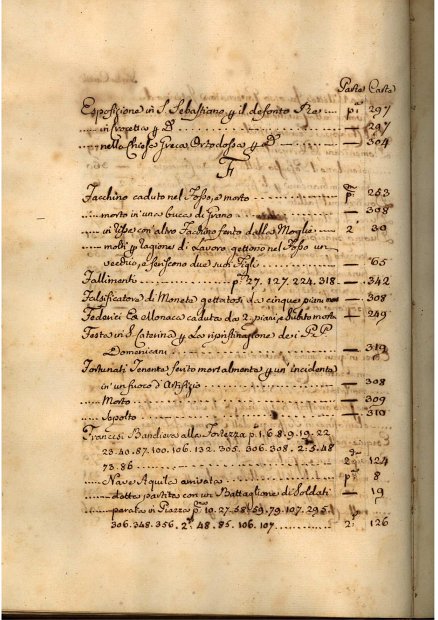 Parte Carte
Esposizione in S. Sebastiano p il defonto Re — pa 297
..... in Crocetta p Do — 297
..... nella Chiesa Greca Ortodossa p Do — 304
F
Facchino caduto nel Fosso, e morto pa 253
..... morto in una buca di Grano — 308
..... in Rissa con altro Facchino ferito dalla Moglie 2 30
..... molti p ragione di Lavoro gettono nel Fosso un
vecchio, e feriscono due suoi Figli — 65
Fallimenti pa 27. 127. 224. 318. — 342
Falsificatore di Monete gettatosi da cinque piani — 308
Federici Ex Monaca caduta da 2. piani, e subito morta — 249
Festa in S. Caterina p La ripristinazione dei PP.
Domenicani — 319
Fortunati Tenente ferito mortalmente p un incidente
in un fuoco d'Artifizio — 308
..... Morto — 309
..... Sepolto — 310
Francesi Bandiere alla Fortezza p. 1. 6. 8. 9. 19. 22
23. 40. 87. 100. 106. 132. 305. 306. 308. 2. 5. 48
73. 86 2a 124
..... Nave Aquila arrivata pa 8
..... detta partita con un Battaglione di Soldati — 19
..... parata in Piazza pa 10. 27. 58. 59. 79. 107. 295
306. 348. 356. 2a 48. 85. 106. 107. 2a 126